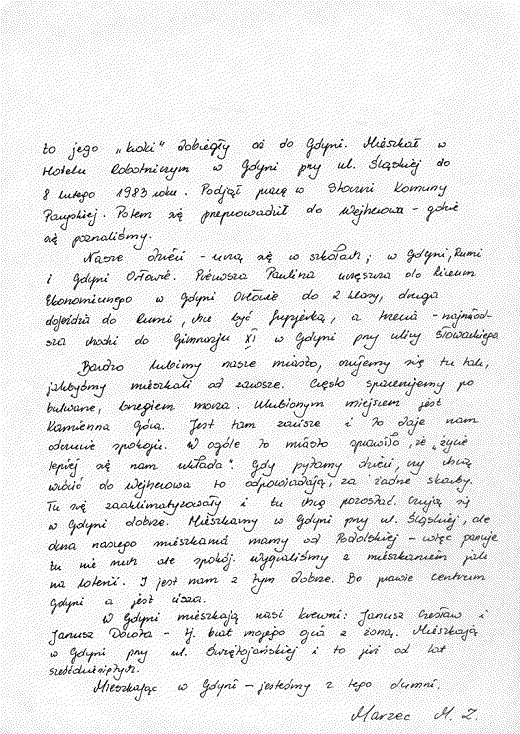 to jego „kroki" dobiegły aż do Gdyni. Mieszkał w
Hotelu Robotniczym w Gdyni przy ul. Śląskiej do
8 lutego 1983 roku. Podjął pracę w Stoczni Komuny
Paryskiej. Potem się przeprowadził do Wejherowa - gdzie
się poznaliśmy.
Nasze dzieci - uczą się w szkołach; w Gdyni, Rumi
i Gdyni Orłowie. Pierwsza Paulina uczęszcza do liceum
Ekonomicznego w Gdyni Orłowie do 2 klasy, druga
dojeżdża do Rumi, chce być fryzjerką, a trzecia - najmłod-
sza chodzi do Gimnazju XI w Gdyni przy ulicy Słowackiego.
Bardzo lubimy nasze miasto, czujemy się tu tak,
jakbyśmy mieszkali od zawsze. Często spacerujemy po
bulwarze, brzegiem morza. Ulubionym miejscem jest
Kamienna Góra. Jest tam zacisze i to daje nam
odczucie spokoju. W ogóle to miasto sprawiło, że „życie
lepiej się nam układa". Gdy pytamy dzieci, czy chcą
wrócić do Wejherowa to odpowiadają, za żadne skarby.
Tu się zaaklimatyzowały i tu chcą pozostać. Czują się
w Gdyni dobrze. Mieszkamy w Gdyni przy ul. Śląskiej, ale
okna naszego mieszkania mamy od Podolskiej - więc panuje
tu nie ruch ale spokój. Wygraliśmy z mieszkaniem jak
na loterii. I jest nam z tym dobrze. Bo prawie centrum
Gdyni a jest cisza.
W Gdyni mieszkają nasi krewni: Janusz Czesław i
Janusz Dorota - tj. brat mojego ojca z żoną. Mieszkają
w Gdyni przy ul. Świętojańskiej i to już od lat
sześćdziesiątych.
Mieszkając w Gdyni - jesteśmy z tego dumni.
Marzec M. Z.